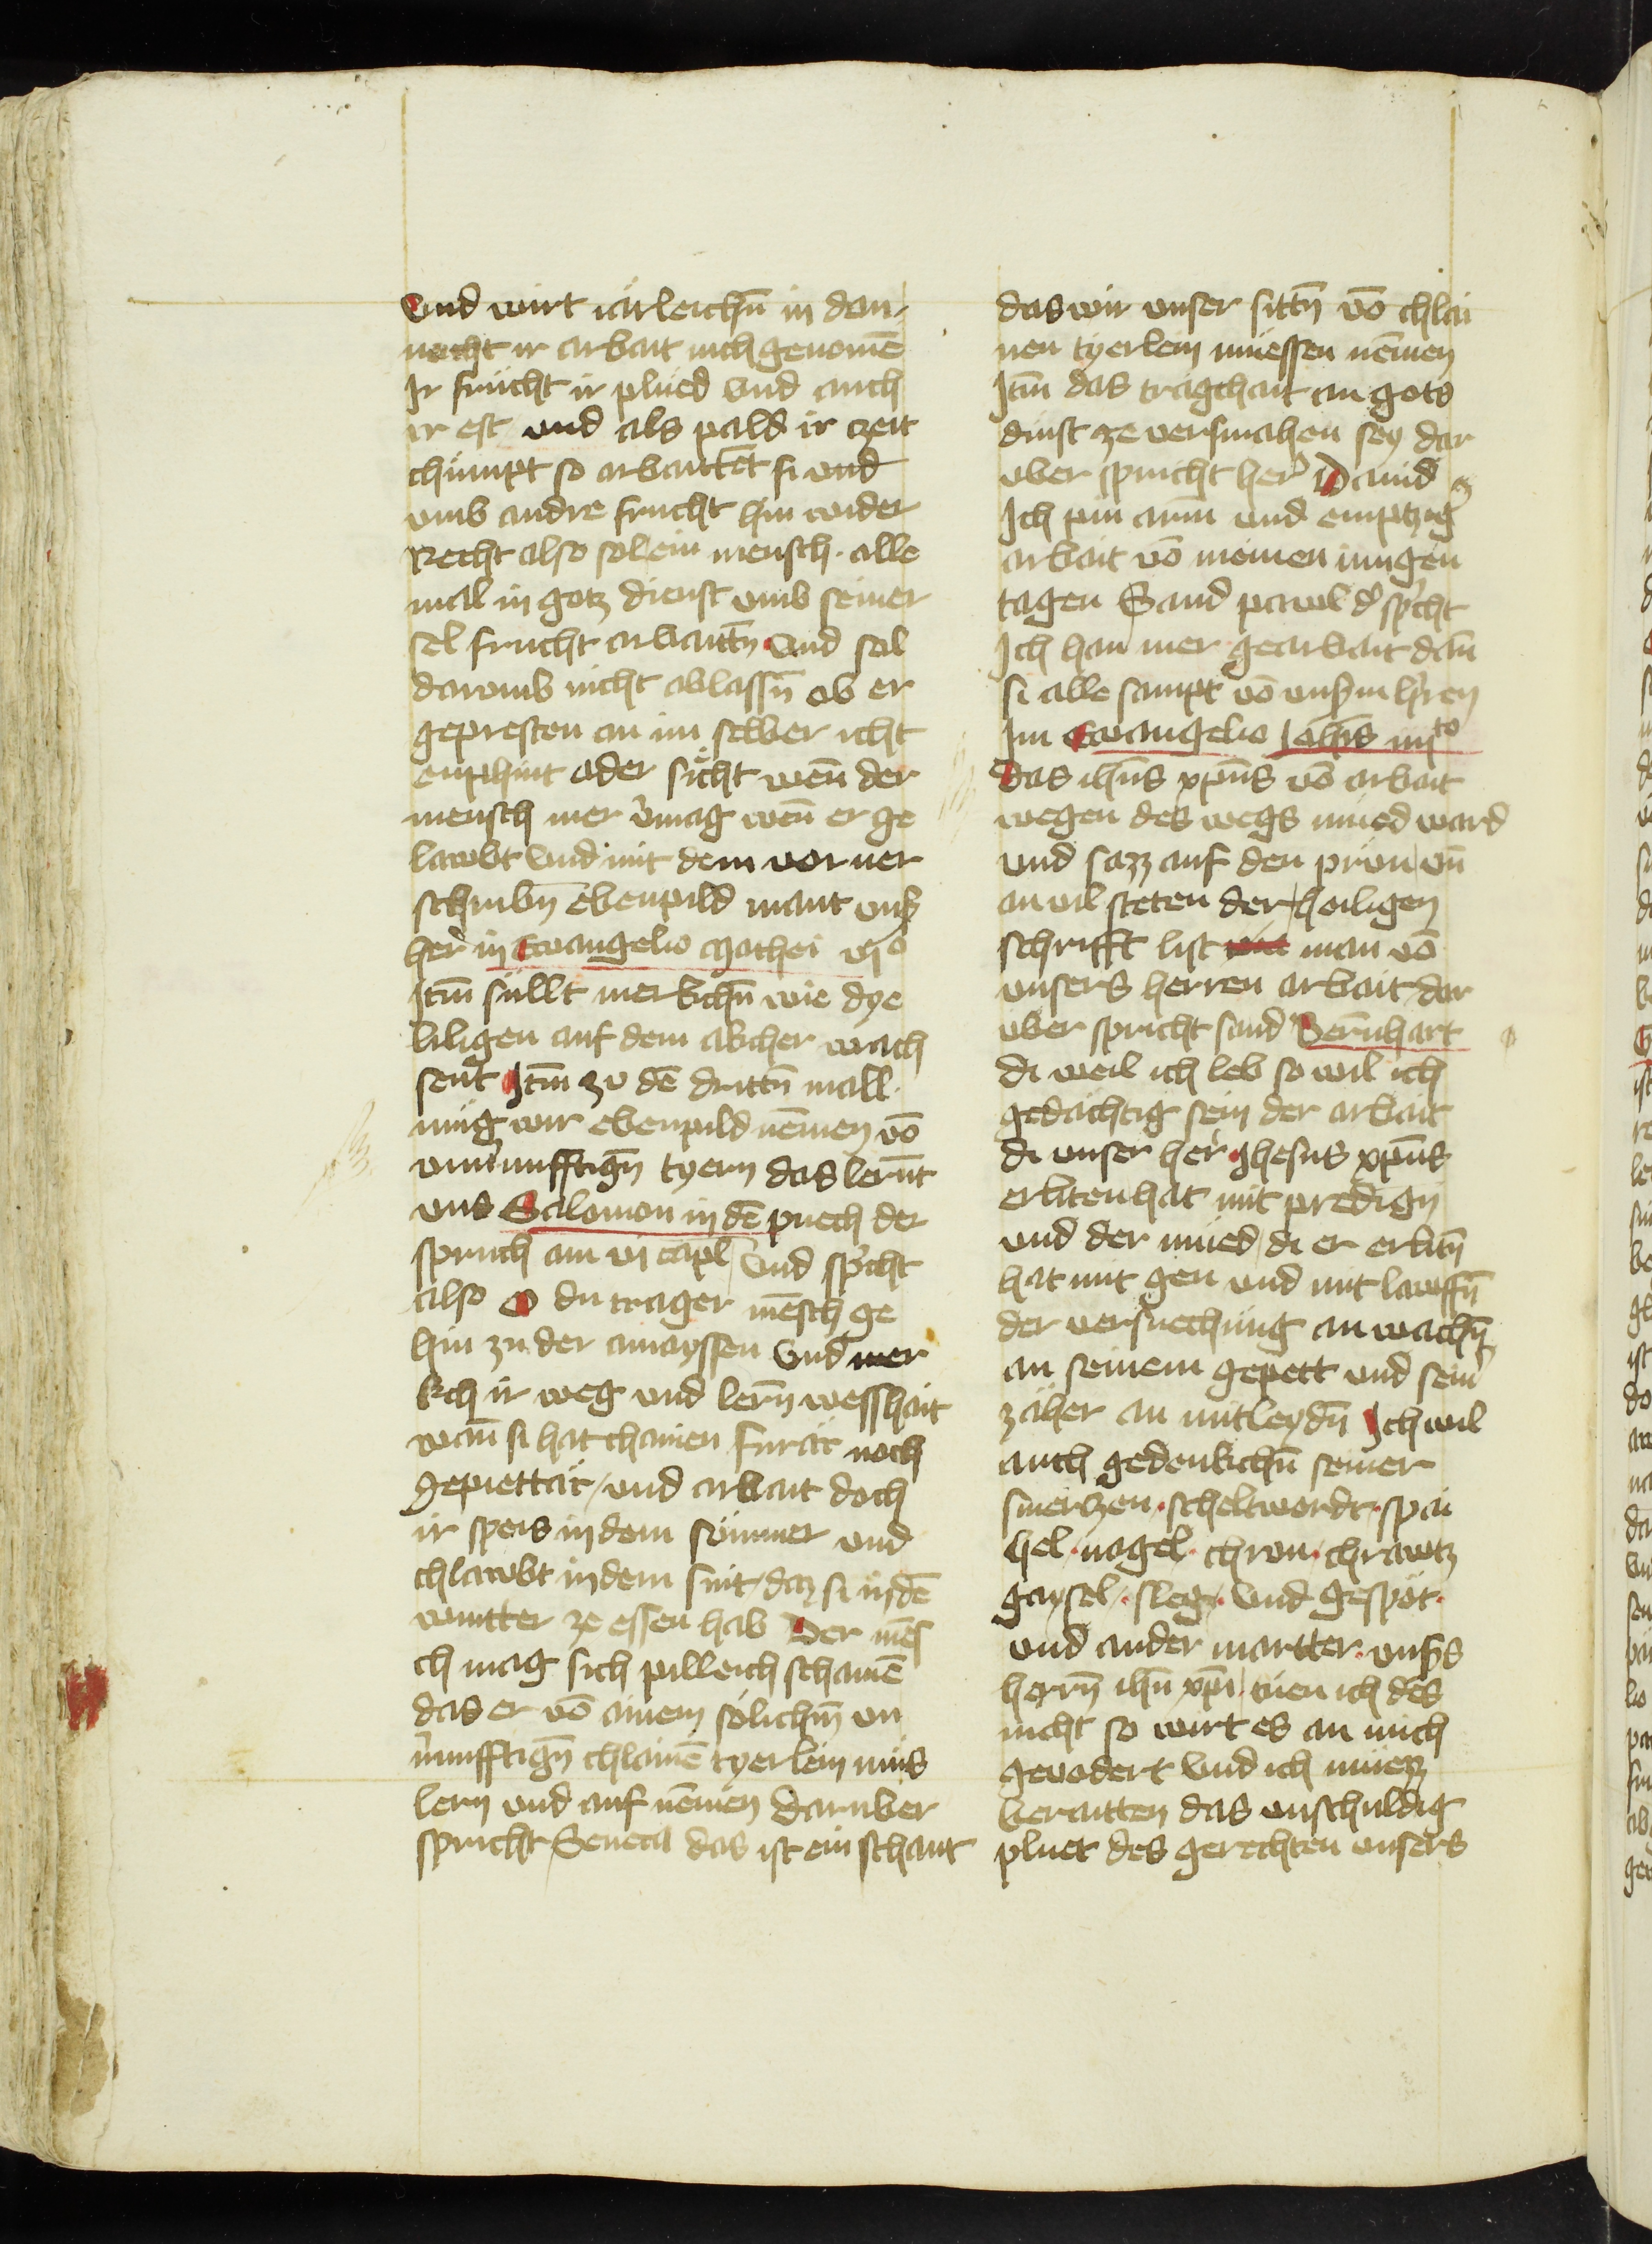 vnd wirt iärleichn̄ in dan
nocht ir arbait nicht genomē
Ir frücht ir plüed vnd auch
ir est vnd als pald ir czeit
chümpt so arbaittet si vnd
vmb andre frucht hin wider
Recht also sol ein mensch alle
mal in gotz dienst vmb seiner
sel frucht arbaittn̄ vnd sol
daromb nicht ablassn̄ ob er
gepresten an im selber icht
enphint oder sicht wen̄ der
mensch mer v̓mag wen̄ er ge
lawbt vnd mit dem vor ver
schribn̄ ebenpild mant vnſ
her̓ in Ewangelio Mathei vjº
Itm̄ süllt merkchn̄ wie dye
liligen auf dem akcher wach
sent Itm̄ zu dē drittn̄ mall
müg wir ebenpild nemēn vō
vnu̓nufftign̄ tyern das lernt
vns Salomon in dē puech der
spruch am vj capl̄ vnd sp̓cht
also O du trager mēsch ge
hin zu der amayssen vnd mer
kch ir weg vnd lern̄ weisshait
wan̄ si hat chainen fürär noch
gepiettär vnd arbait doch
ir speis in dem summer vnd
chlawbt in dem snit daz si in dē
wintter ze essen hab Der mēs
ch mag sich pilleich schamē
das er vō ainem sölichm̄ vn
v̓nufftign̄ chlainē tyerlein mus
lern vnd auf nemēn darvber
spricht Seneca das ist ein schant
das wir vnser sittn̄ vō chlai
nen tyerlein müessen nemēn
Itm̄ das tragchait an gots
dinst ze versmahen sey dar
vber spricht her̓ Dauid
Ich pin arm vnd emptzig
arbait vō meinen iungen
tagen Sand pawl d̓ sp̓cht
Ich han mer gearbait dan̄
si alle sampt vō vnſm h̓ren
Im Ewangelio Joh̄is iiijto
Das ih̄us xp̄us vō arbait
wegen des wegs müed ward
vnd sazz auf den prün vn̄
an vil steten der heiligen
schrifft list man vō
vnsers herren arbait dar
vber spricht sand Bernhart
di weil ich leb so wil ich
gedächtig sein der arbait
di vnser her̓ Jhesus xp̄us
erliten hat mit predign̄
vnd der müed di er erlitn̄
hat mit gen vnd mit lawffn̄
der versuechung an wachn̄
an seinem gepett vnd sein̓
zäher an mitleydn̄ Ich wil
auch gedenkchn̄ seiner
smerczen scheltwordt spai
hel nagel chron chrawtz
gaysel sleg vnd gespöt
vnd ander martter vnſs
herrn̄ ih̄u xp̄i tuen ich des
nicht so wirt es an mich
gevodert vnd ich muez
beraitten das vnschuldig
pluet des gerechten vnsers